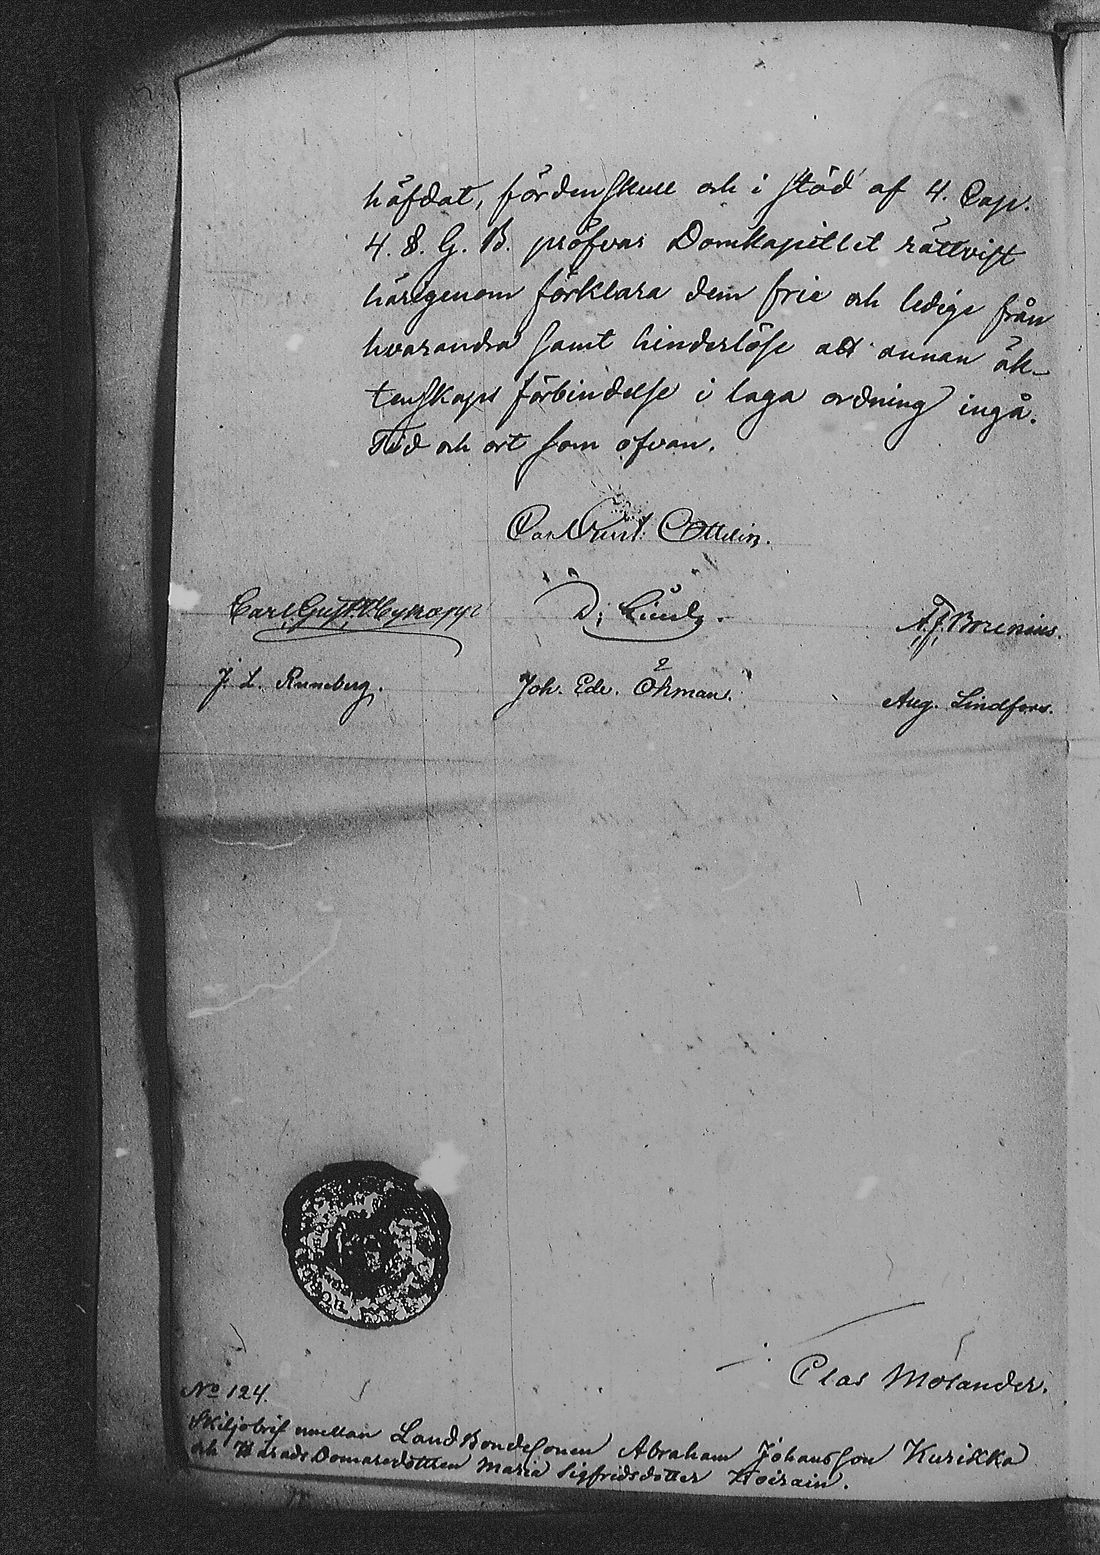 häfdat, fördenskull och i stöd af 4. Cap.
4. §. G. B. pröfvar Domkapitlet rättvist
härigenom förklara dem frie och ledige från
hvarandra samt hinderlöse att annan äk-
tenskaps förbindelse i laga ordning ingå.
Tid och ort som ofvan.
Carl Gust. Ottelin.
Carl. Gust.
D. Lund.
A. F. Borenius.
J. L. Runeberg.
Joh. Edv. Öhman.
Aug. Lindfors.
Clas Molander.
No 124.
Skiljobref mellan LandBondeSonen Abraham Johansson Kurikka
och HäradsDomaredottren Maria Sigfridsdotter